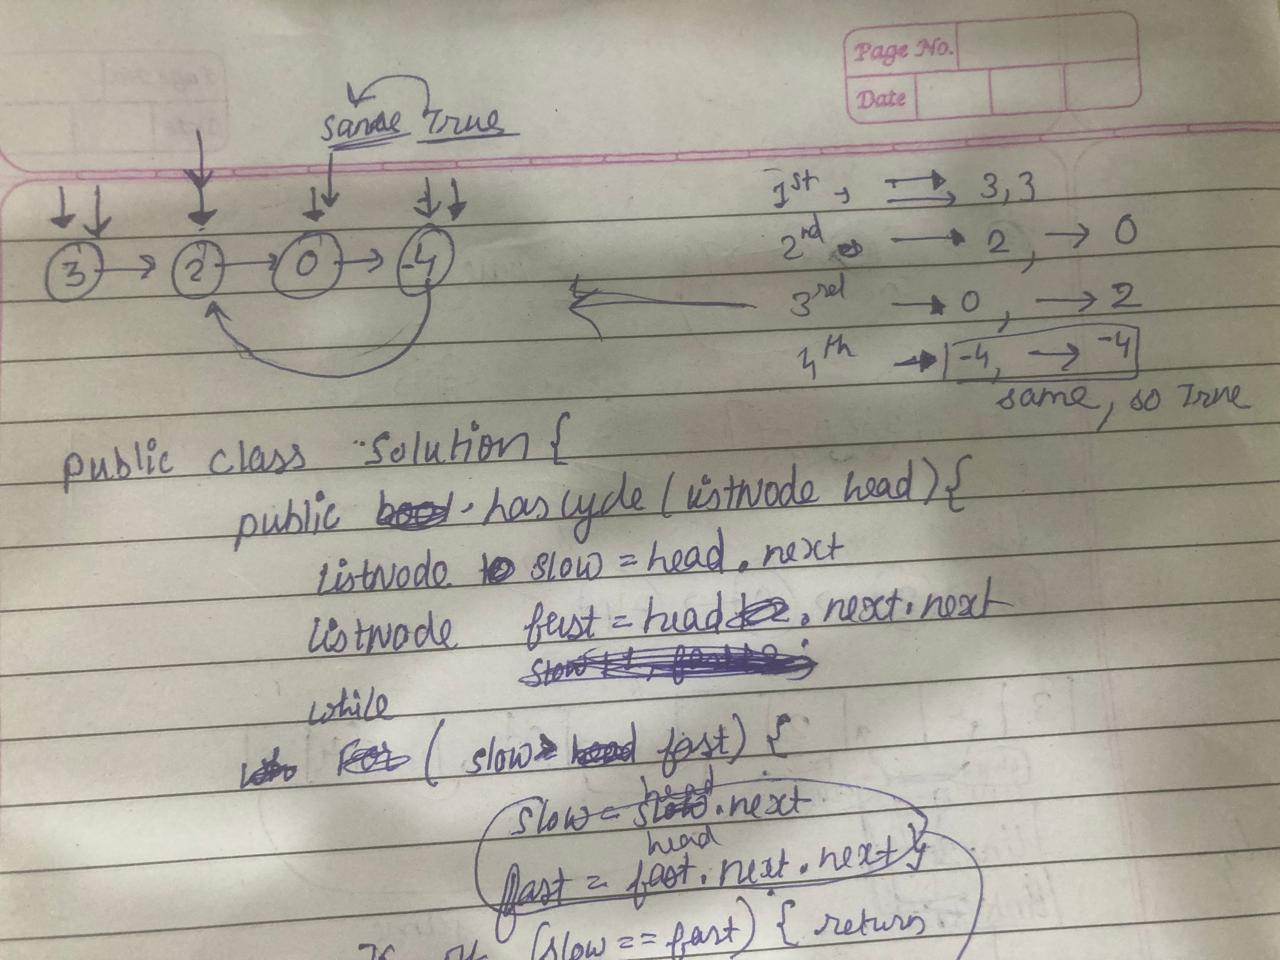 Page No.
Date
same True
1st, → 3, 3
2rd → 2, → 0
3 → 2 → 0 → -4
3rd → 0, → 2
4th → -4, → -4
same, so True
public class Solution {
public hascycle (listNode head) {
listNode slow = head.next
listNode fast = head.next.next
while
(slow fast) {
head
slow = slow.next
head
fast = fast.next.next }
(slow == fast) { return